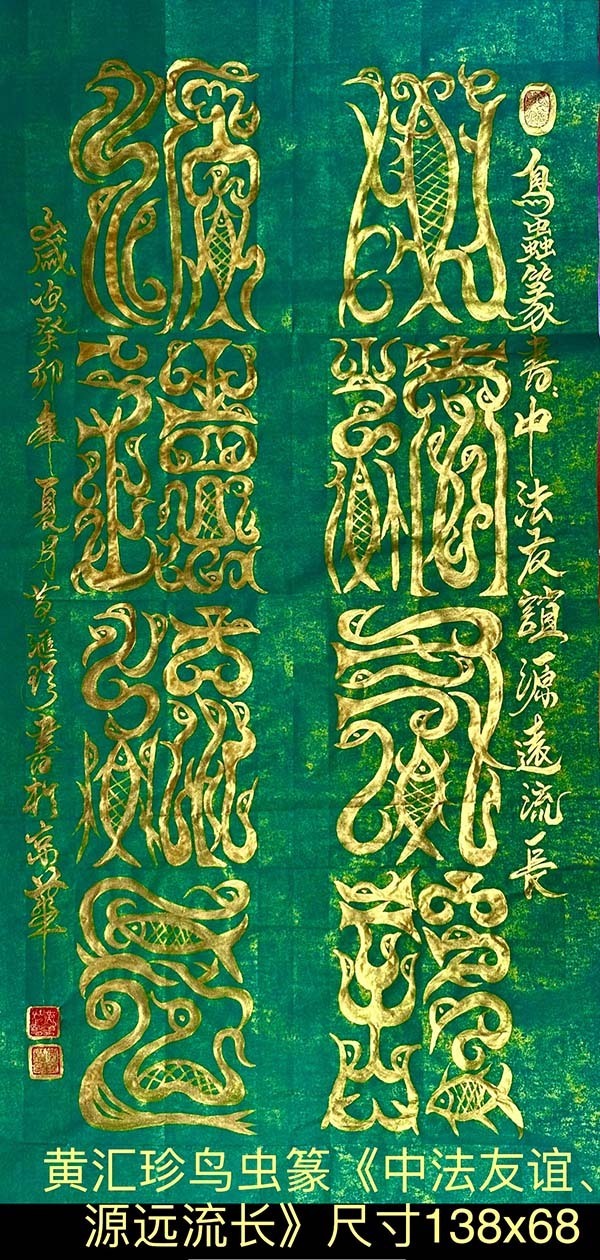 鳥蟲篆書：中法友誼源遠流長
中法友誼
源遠流長
歲次癸卯年夏月黃滙珍書於京華
黄汇珍鸟虫篆《中法友谊、
源远流长》尺寸138x68